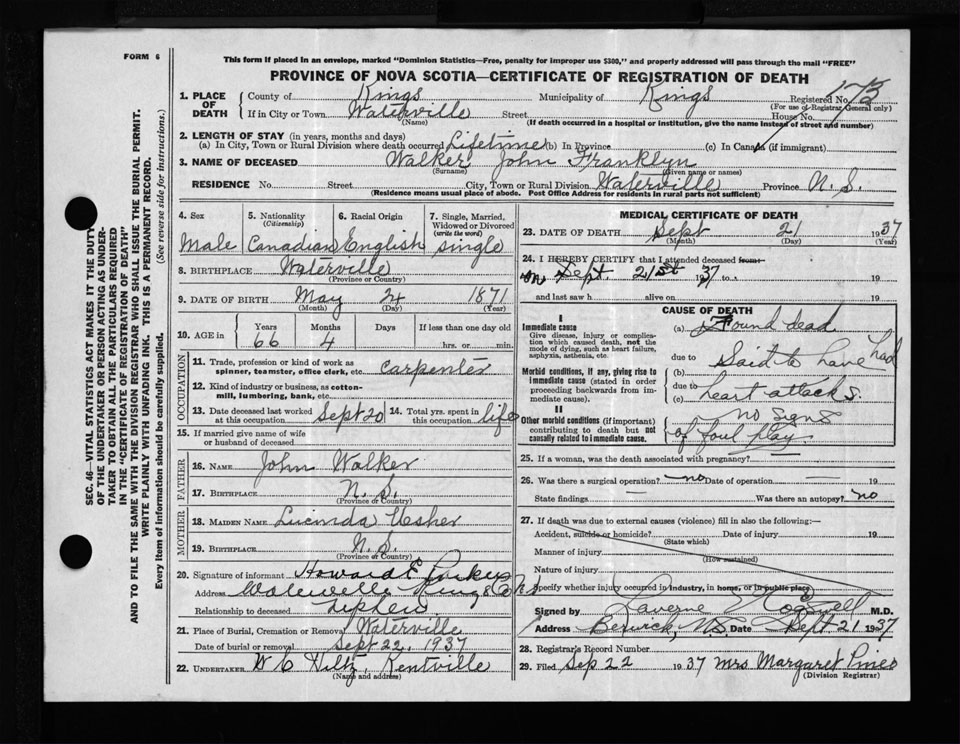 FORM 6
This form if placed in an envelope, marked "Dominion Statistics—Free, penalty for improper use $300," and properly addressed will pass through the mail "FREE"
PROVINCE OF NOVA SCOTIA—CERTIFICATE OF REGISTRATION OF DEATH
SEC. 46—VITAL STATISTICS ACT MAKES IT THE DUTY
OF THE UNDERTAKER OR PERSON ACTING AS UNDER-
TAKER TO OBTAIN ALL THE PARTICULARS REQUIRED
IN THE "CERTIFICATE OF REGISTRATION OF DEATH"
AND TO FILE THE SAME WITH THE DIVISION REGISTRAR WHO SHALL ISSUE THE BURIAL PERMIT.
WRITE PLAINLY WITH UNFADING INK. THIS IS A PERMANENT RECORD.
Every item of information should be carefully supplied. (See reverse side for instructions.)
1. PLACE OF DEATH County of Kings Municipality of Kings Registered No. 173
(For use of Registrar General only)
If in City or Town Waterville Street House No.
(Name) (If death occurred in a hospital or institution, give the name instead of street and number)
2. LENGTH OF STAY (in years, months and days)
(a) In City, Town or Rural Division where death occurred Lifetime (b) In Province (c) In Canada (if immigrant)
3. NAME OF DECEASED Walker John Franklyn
(Surname) (Given name or names)
RESIDENCE No. Street City, Town or Rural Division Waterville Province N.S.
(Residence means usual place of abode. Post Office Address for Residents in rural parts not sufficient)
4. Sex Male
5. Nationality (Citizenship) Canadian
6. Racial Origin English
7. Single, Married, Widowed or Divorced (write the word) single
8. BIRTHPLACE Waterville
(Province or Country)
9. DATE OF BIRTH May 24 1871
(Month) (Day) (Year)
10. AGE in Years 66 Months 4 Days If less than one day old hrs. or min.
OCCUPATION
11. Trade, profession or kind of work as spinner, teamster, office clerk, etc. carpenter
12. Kind of industry or business, as cotton-mill, lumbering, bank, etc.
13. Date deceased last worked at this occupation Sept 20 14. Total yrs. spent in this occupation life
15. If married give name of wife or husband of deceased
FATHER
16. NAME John Walker
17. BIRTHPLACE N.S.
(Province or Country)
MOTHER
18. MAIDEN NAME Lucinda Usher
19. BIRTHPLACE N.S.
(Province or Country)
20. Signature of informant Howard E.
Address Waterville Kings Co N.S.
Relationship to deceased nephew
21. Place of Burial, Cremation or Removal Waterville
Date of burial or removal Sept 22, 1937
22. UNDERTAKER W C Hiltz, Kentville
(Name and address)
MEDICAL CERTIFICATE OF DEATH
23. DATE OF DEATH Sept 21 1937
(Month) (Day) (Year)
24. I HEREBY CERTIFY that I attended deceased from
on Sept 21st 1937 to 19
and last saw h alive on 19
CAUSE OF DEATH
I
Immediate cause
Give disease, injury or complication which caused death, not the mode of dying, such as heart failure, asphyxia, asthenia, etc.
(a) Found dead
due to
Morbid conditions, if any, giving rise to immediate cause (stated in order proceeding backwards from immediate cause).
(b) Said to have had
due to
(c) heart attacks.
II
Other morbid conditions (if important) contributing to death but not causally related to immediate cause.
no signs
of foul play
25. If a woman, was the death associated with pregnancy? —
26. Was there a surgical operation? no Date of operation — 19
State findings — Was there an autopsy? no
27. If death was due to external causes (violence) fill in also the following:—
Accident, suicide or homicide? Date of injury 19
(State which)
Manner of injury
(How sustained)
Nature of injury
Specify whether injury occurred in industry, in home, or in public place
Signed by Laverne Cogswell M.D.
Address Berwick, N.S. Date Sept 21 1937
28. Registrar's Record Number
29. Filed Sep 22 1937 Mrs Margaret Pineo
(Division Registrar)